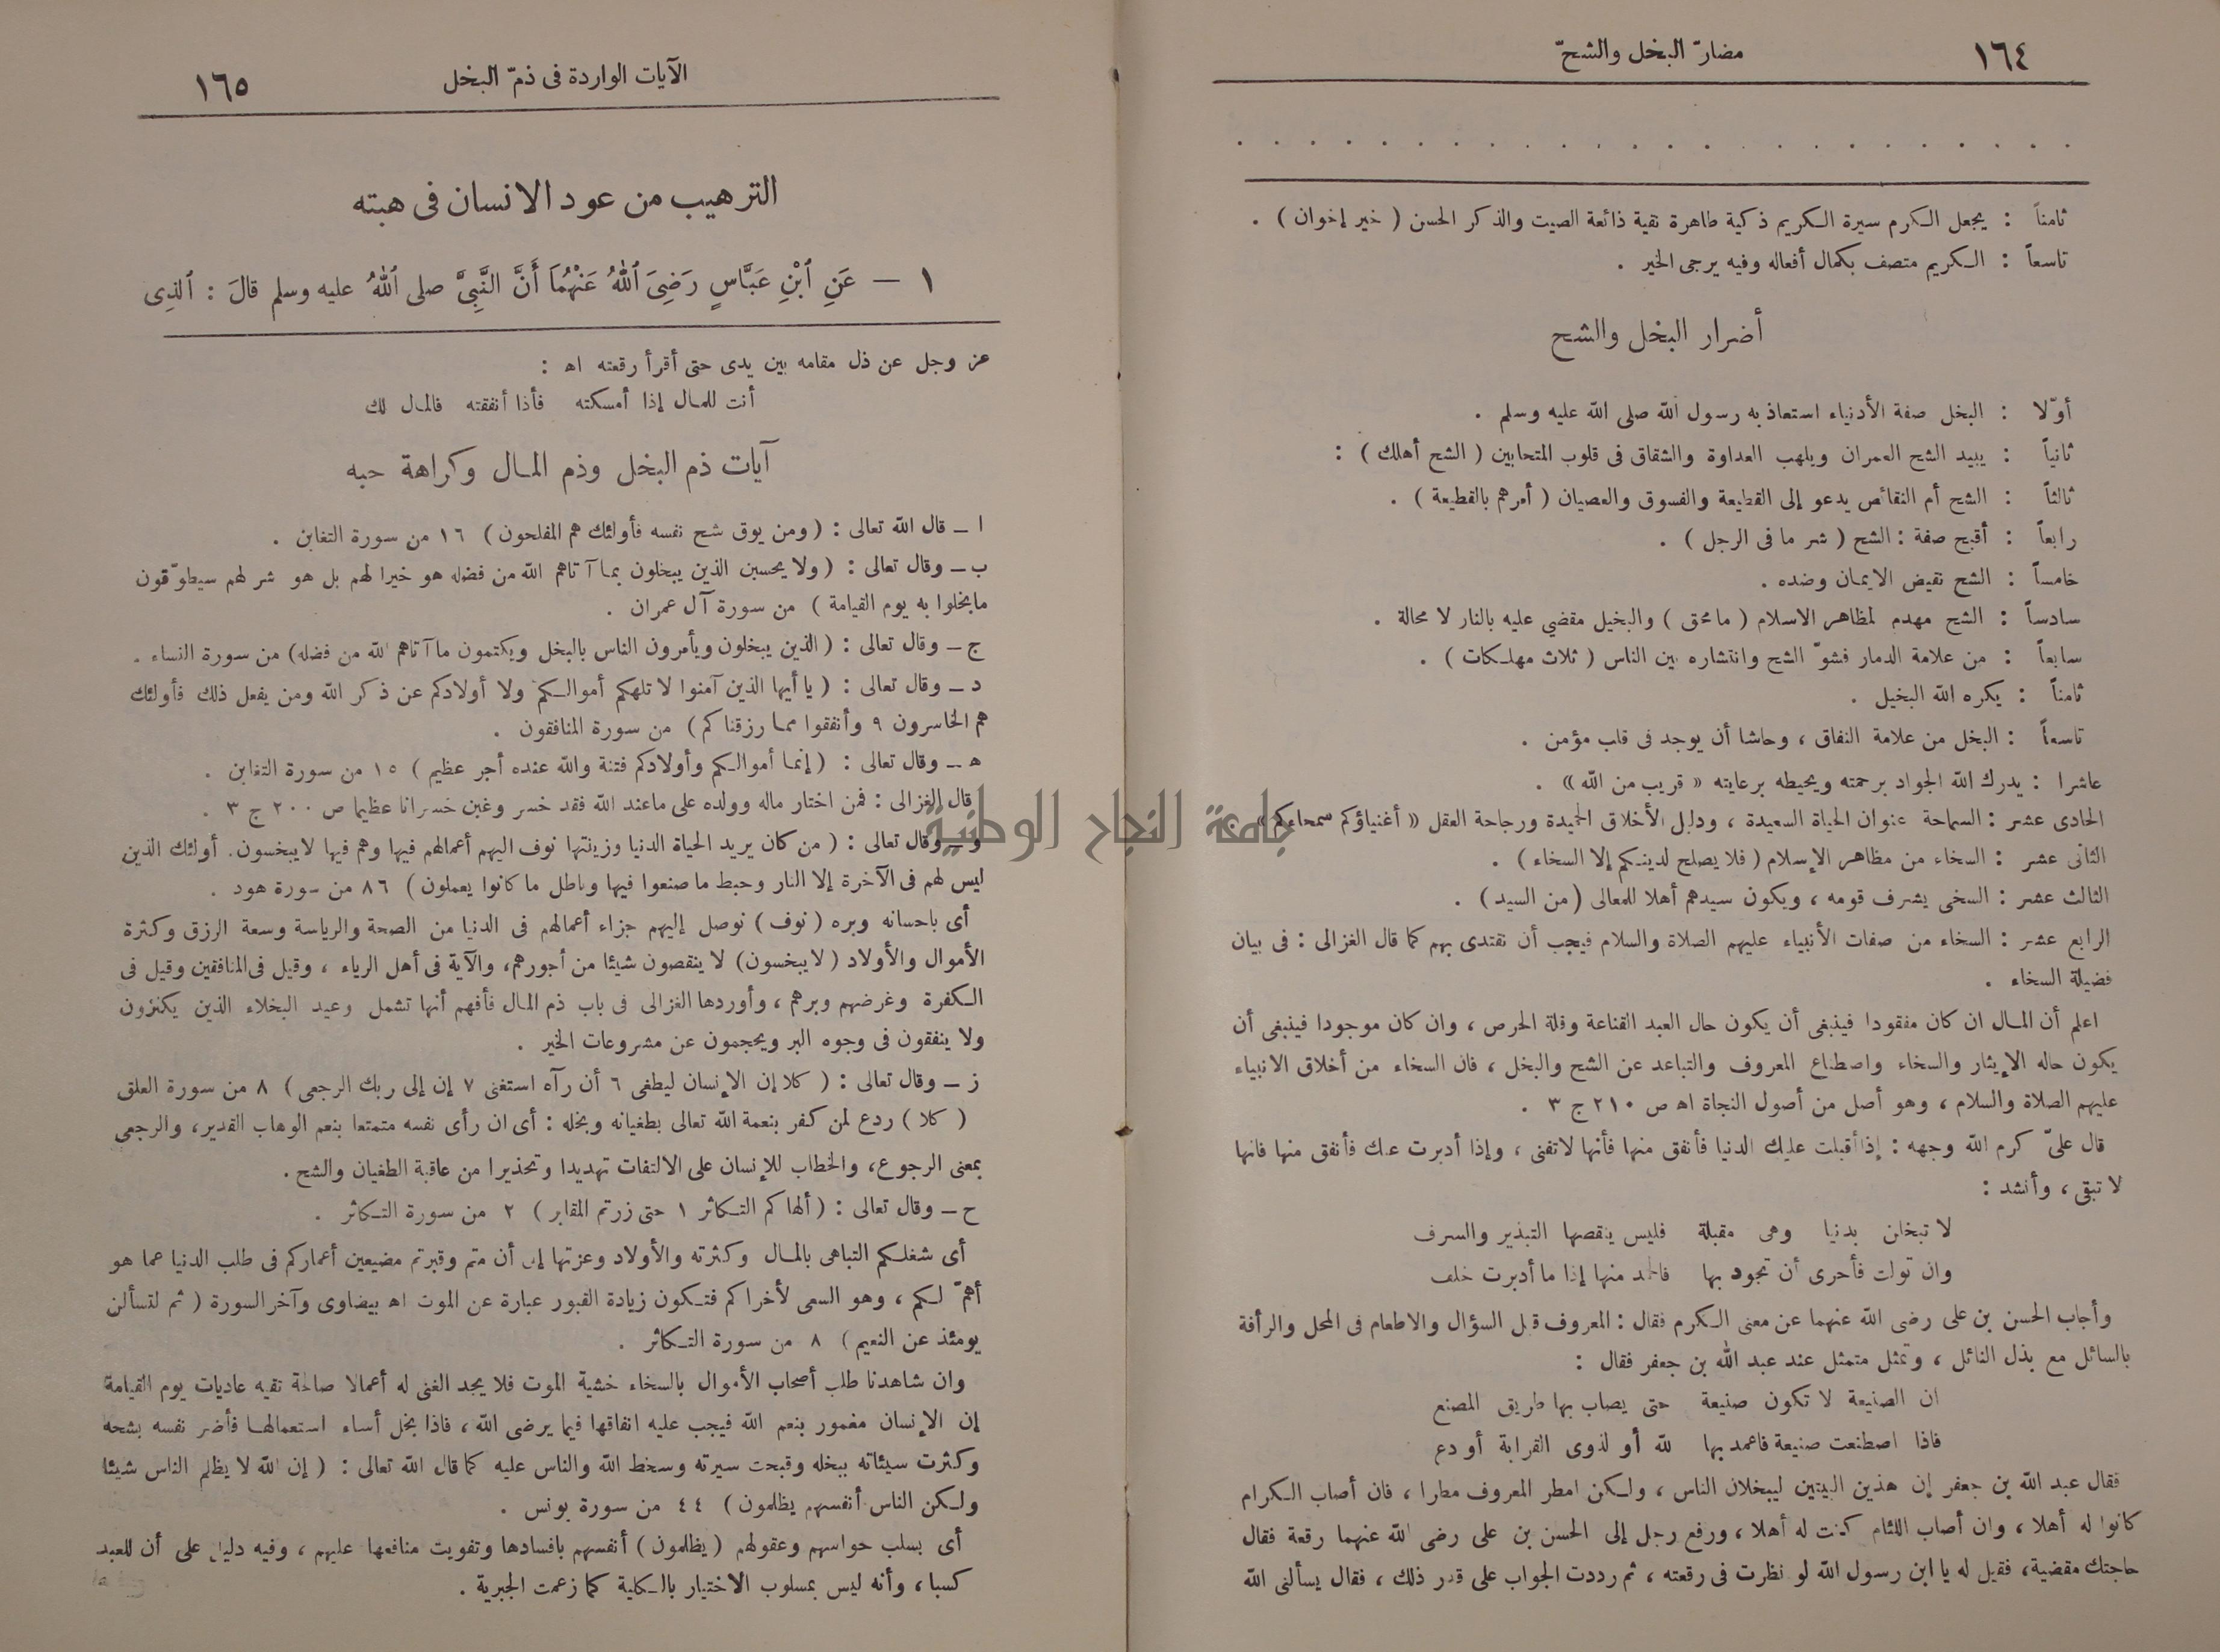 ١٦٤
مضارّ البخل والشحّ
ثامناً : يجعل الكرم سيرة الكريم ذكية طاهرة نقية ذائعة الصيت والذكر الحسن ( خير إخوان ) .
تاسعاً : الكريم متصف بكمال أفعاله وفيه يرجى الخير .
أضرار البخل والشح
أوّلا : البخل صفة الأدنياء استعاذ به رسول الله صلى الله عليه وسلم .
ثانياً : يبيد الشح العمران ويلهب العداوة والشقاق فى قلوب المتحابين ( الشح أهلك ) :
ثالثاً : الشح أم النقائص يدعو إلى القطيعة والفسوق والعصيان ( أمرهم بالقطيعة ) .
رابعاً : أقبح صفة : الشح ( شر ما فى الرجل ) .
خامساً : الشح نقيض الايمان وضده .
سادساً : الشح مهدم لمظاهر الاسلام ( ما محق ) والبخيل مقضي عليه بالنار لا محالة .
سابعاً : من علامة الدمار فشوّ الشح وانتشاره بين الناس ( ثلاث مهلكات ) .
ثامناً : يكره الله البخيل .
تاسعاً : البخل من علامة النفاق ، وحاشا أن يوجد فى قلب مؤمن .
عاشرا : يدرك الله الجواد برحمته ويحيطه برعايته « قريب من الله » .
الحادى عشر : السماحة عنوان الحياة السعيدة ، ودليل الأخلاق الحميدة ورجاحة العقل « أغنياؤكم سمحاءكم »
الثانى عشر : السخاء من مظاهر الإسلام ( فلا يصلح لدينكم إلا السخاء ) .
الثالث عشر : السخى يشرف قومه ، ويكون سيدهم أهلا للمعالى ( من السيد ) .
الرابع عشر : السخاء من صفات الأنبياء عليهم الصلاة والسلام فيجب أن نقتدى بهم كما قال الغزالى : فى بيان
فضيلة السخاء .
اعلم أن المال ان كان مفقودا فينبغى أن يكون حال العبد القناعة وقلة الحرص ، وان كان موجودا فينبغى أن
يكون حاله الإيثار والسخاء واصطناع المعروف والتباعد عن الشح والبخل ، فان السخاء من أخلاق الانبياء
عليهم الصلاة والسلام ، وهو أصل من أصول النجاة اه ص ٢١٠ ج ٣ .
قال علىّ كرم الله وجهه : إذا أقبلت عليك الدنيا فأنفق منها فأنها لاتفنى ، وإذا أدبرت عنك فأنفق منها فانها
لا تبقى ، وأنشد :
لا تبخلن بدنيا وهى مقبلة فليس ينقصها التبذير والسرف
وان تولت فأحرى أن تجود بها فالحمد منها إذا ما أدبرت خلف
وأجاب الحسن بن على رضى الله عنهما عن معنى الكرم فقال : المعروف قبل السؤال والاطعام فى المحل والرأفة
بالسائل مع بذل النائل ، وتمثل متمثل عند عبد الله بن جعفر فقال :
ان الصنيعة لا تكون صنيعة حتى يصاب بها طريق المصنع
فاذا اصطنعت صنيعة فاعمد بها لله أو لذوى القرابة أو دع
فقال عبد الله بن جعفر إن هذين البيتين ليبخلان الناس ، ولكن امطر المعروف مطرا ، فان أصاب الكرام
كانوا له أهلا ، وان أصاب اللئام كنت له أهلا ، ورفع رجل إلى الحسن بن على رضى الله عنهما رقعة فقال
حاجتك مقضية، فقيل له يا ابن رسول الله لو نظرت فى رقعته ، ثم رددت الجواب على قدر ذلك ، فقال يسألنى الله
الآيات الواردة فى ذمّ البخل
١٦٥
الترهيب من عود الانسان فى هبته
١ — عَنِ ٱبْنِ عَبَّاسٍ رَضِىَ ٱللهُ عَنْهُمَا أَنَّ النَّبِىَّ صلى ٱللهُ عليه وسلم قالَ : ٱلذِى
عز وجل عن ذل مقامه بين يدى حتى أقرأ رقعته اه :
أنت للمال إذا أمسكته فأذا أنفقته فالمال لك
آيات ذم البخل وذم المال وكراهة حبه
ا ــ قال الله تعالى : ( ومن يوق شح نفسه فأولئك هم المفلحون ) ١٦ من سورة التغابن .
ب ــ وقال تعالى : ( ولا يحسبن الذين يبخلون بما آتاهم الله من فضله هو خيرا لهم بل هو شر لهم سيطوّقون
مابخلوا به يوم القيامة ) من سورة آل عمران .
ج ــ وقال تعالى : ( الذين يبخلون ويأمرون الناس بالبخل ويكتمون ما آتاهم الله من فضله ) من سورة النساء .
د ــ وقال تعالى : ( يا أيها الذين آمنوا لا تلهكم أموالكم ولا أولادكم عن ذكر الله ومن يفعل ذلك فأولئك
هم الخاسرون ٩ وأنفقوا مما رزقناكم ) من سورة المنافقون .
ه ــ وقال تعالى : ( إنما أموالكم وأولادكم فتنة والله عنده أجر عظيم ) ١٥ من سورة التغابن .
قال الغزالى : فمن اختار ماله وولده على ماعند الله فقد خسر وغبن خسرانا عظيما ص ٢٠٠ ج ٣ .
و ــ وقال تعالى : ( من كان يريد الحياة الدنيا وزينتها نوف اليهم أعمالهم فيها وهم فيها لايبخسون. أولئك الذين
ليس لهم فى الآخرة إلا النار وحبط ما صنعوا فيها وباطل ما كانوا يعملون ) ٨٦ من سورة هود .
أى باحسانه وبره ( نوف ) نوصل إليهم جزاء أعمالهم فى الدنيا من الصحة والرياسة وسعة الرزق وكثرة
الأموال والأولاد ( لا يبخسون ) لا ينقصون شيئا من أجورهم، والآية فى أهل الرياء ، وقيل فى المنافقين وقيل فى
الكفرة وغرضهم وبرهم ، وأوردها الغزالى فى باب ذم المال فأفهم أنها تشمل وعيد البخلاء الذين يكنزون
ولا ينفقون فى وجوه البر ويحجمون عن مشروعات الخير .
ز ــ وقال تعالى : ( كلا إن الإنسان ليطغى ٦ أن رآه استغنى ٧ إن إلى ربك الرجعى ) ٨ من سورة العلق
( كلا ) ردع لمن كفر بنعمة الله تعالى بطغيانه وبخله : أى ان رأى نفسه متمتعا بنعم الوهاب القدير، والرجعى
بمعنى الرجوع، والخطاب للإنسان على الالتفات تهديدا وتحذيرا من عاقبة الطغيان والشح .
ح ــ وقال تعالى : ( ألهاكم التكاثر ١ حتى زرتم المقابر ) ٢ من سورة التكاثر .
أى شغلكم التباهى بالمال وكثرته والأولاد وعزتها إلى أن متم وقبرتم مضيعين أعماركم فى طلب الدنيا عما هو
أهمّ لكم ، وهو السعى لأخراكم فتكون زيادة القبور عبارة عن الموت اه بيضاوى وآخر السورة ( ثم لتسألن
يومئذ عن النعيم ) ٨ من سورة التكاثر .
وان شاهدنا طلب أصحاب الأموال بالسخاء خشية الموت فلا يجد الغنى له أعمالا صالحة تقيه عاديات يوم القيامة
إن الإنسان مغمور بنعم الله فيجب عليه انفاقها فيما يرضى الله ، فاذا بخل أساء استعمالها فأضر نفسه بشحه
وكثرت سيئاته ببخله وقبحت سيرته وسخط الله والناس عليه كما قال الله تعالى : ( إن الله لا يظلم الناس شيئا
ولكن الناس أنفسهم يظلمون ) ٤٤ من سورة يونس .
أى بسلب حواسهم وعقولهم ( يظلمون ) أنفسهم بافسادها وتفويت منافعها عليهم ، وفيه دليل على أن للعبد
كسبا ، وأنه ليس بمسلوب الاختيار بالكلية كما زعمت الجبرية .
جامعة النجاح الوطنية